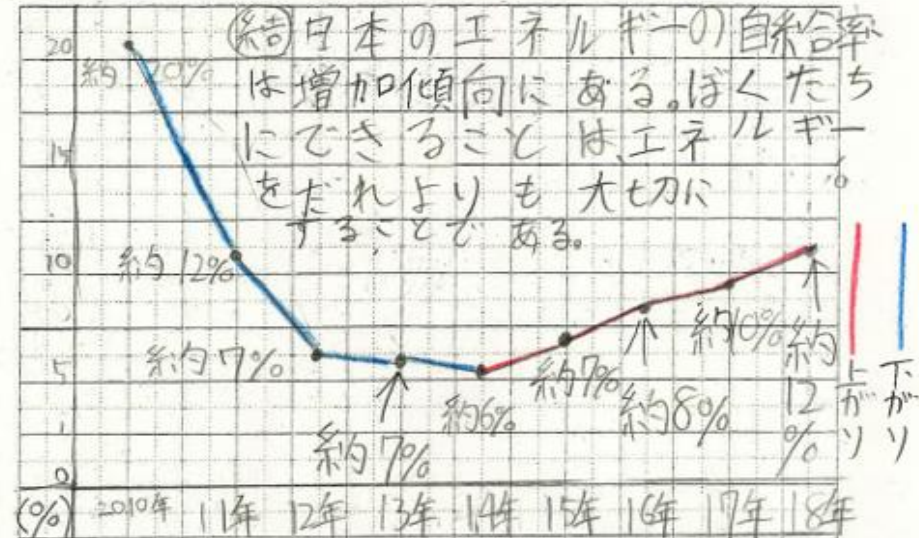 ㊗結 日本のエネルギーの自給率
は増加傾向にある。ぼくたち
にできることは、エネルギー
をだれよりも大切に
することである。
20
15
10
5
0
(%)
約20%
約12%
約7%
約7%
約6%
約7%
約8%
約10%
約12%
2010年 11年 12年 13年 14年 15年 16年 17年 18年
上がり
下がり